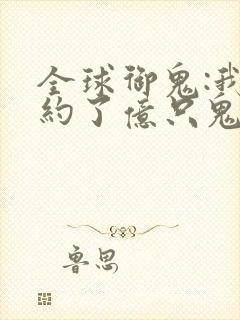 全球御鬼:我
約了億只鬼
鲁思